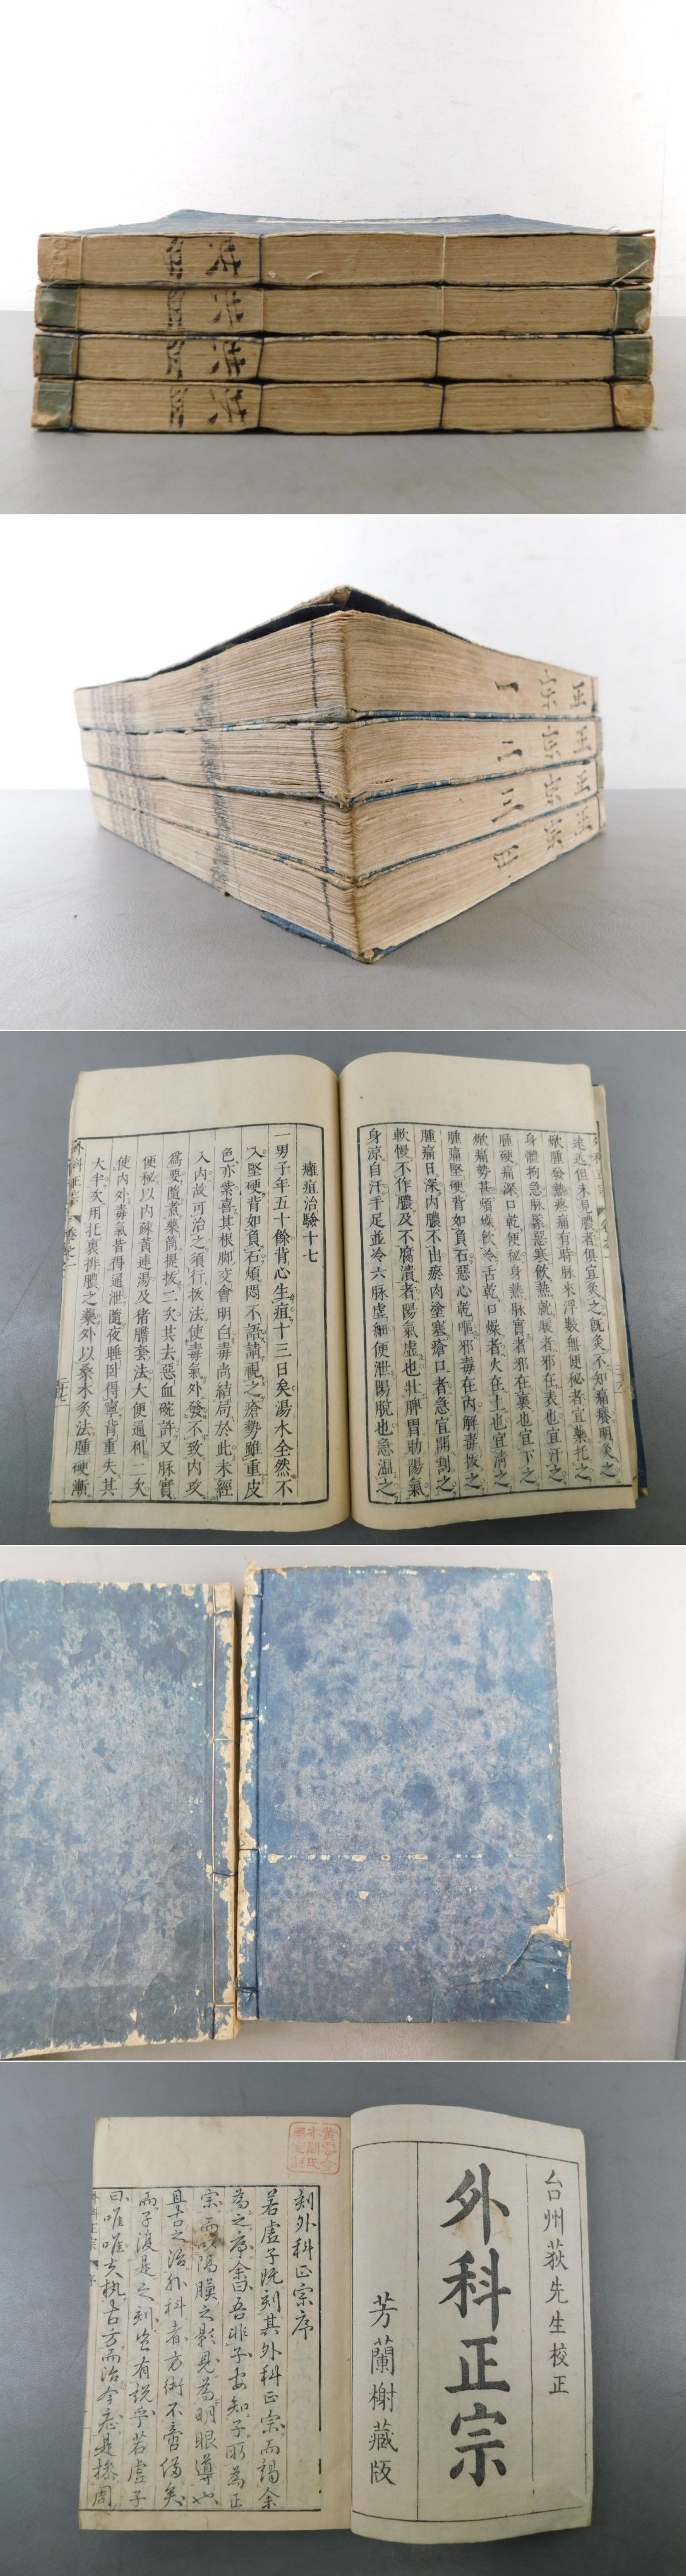 正宗一
正宗二
正宗三
正宗四
遠近但未見膿者俱宜灸之既灸不知痛癢明灸之
焮腫發熱疼痛有時脉來浮數無便秘者宜藥托之
身體拘急脉緊惡寒飲熱就暖者邪在表也宜汗之
腫硬痛深口乾便秘身熱脉實者邪在裏也宜下之
焮痛勢甚煩燥飲冷舌乾口燥者火在上也宜清之
腫痛堅硬背如負石惡心乾嘔邪毒在內解毒拔之
腫痛日深內膿不出瘀肉塗塞瘡口者急宜開割之
軟慢不作膿及不腐潰者陽氣虛也壯脾胃助陽氣
身涼自汗手足並冷六脉虛細便泄陽脫也急溫之
癰疽治驗十七
一男子年五十餘背心生疽十三日矣湯水全然不
入堅硬背如負石煩悶不語請視之瘡勢雖重皮
色亦紫喜其根脚交會明白毒尚結局於此未經
入內故可治之須行拔法使毒氣外發不致內攻
為要隨煮藥筒提拔二次共去惡血碗許又脉實
便秘以內疎黃連湯及猪膽套法大便通利二次
使內外毒氣皆得通泄隨夜睡臥得寧背重失其
大半次用托裏排膿之藥外以桑木灸法腫硬漸
外科正宗
卷之一
台州荻先生校正
外科正宗
芳蘭榭藏版
刻外科正宗序
若虛子既刻其外科正宗而謁余
為之序余曰吾非子安知子所為正
宗而以隔膜之影見為明眼導也
且古之治外科者方術不啻備矣
而子復是之刻豈有說乎若虛子
曰唯唯夫執古方而治今恙是猶周